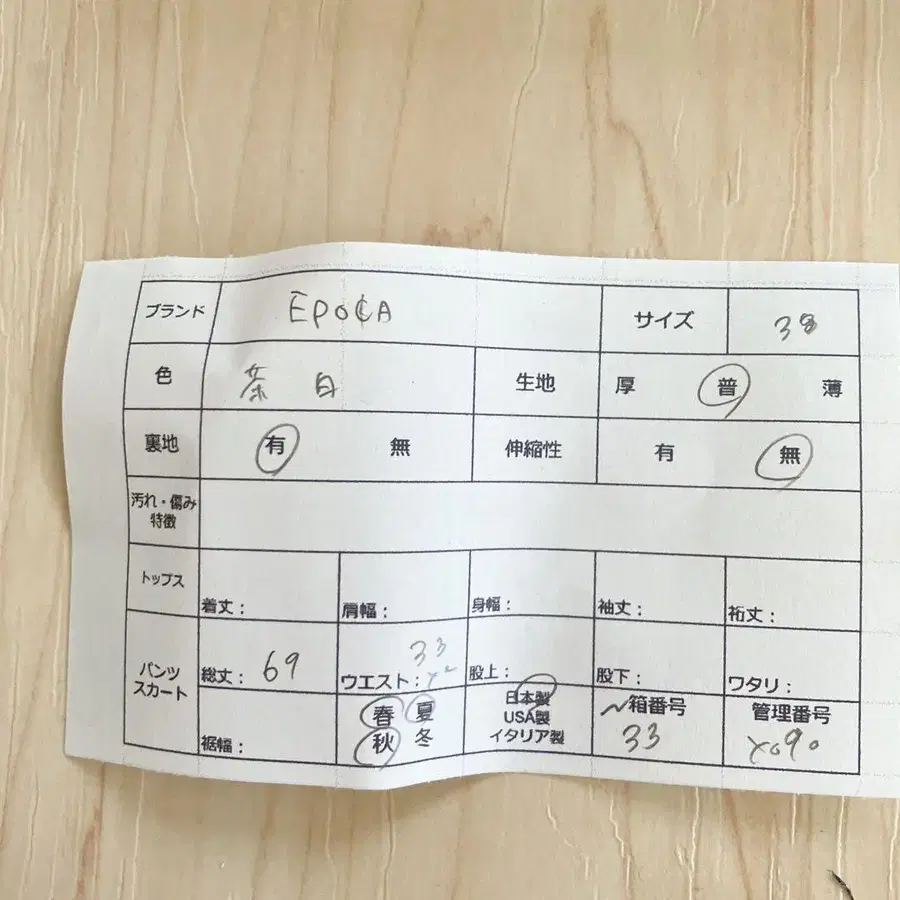 ブランド EPOCA サイズ 38
色 茶 白 生地 厚 普 薄
裏地 有 無 伸縮性 有 無
汚れ・傷み
特徴
トップス 着丈: 肩幅: 身幅: 袖丈: 裄丈:
パンツ
スカート 総丈: 69 ウエスト: 33 股上: 股下: ワタリ:
裾幅: 春 夏
秋 冬
日本製
USA製
イタリア製
箱番号
33
管理番号